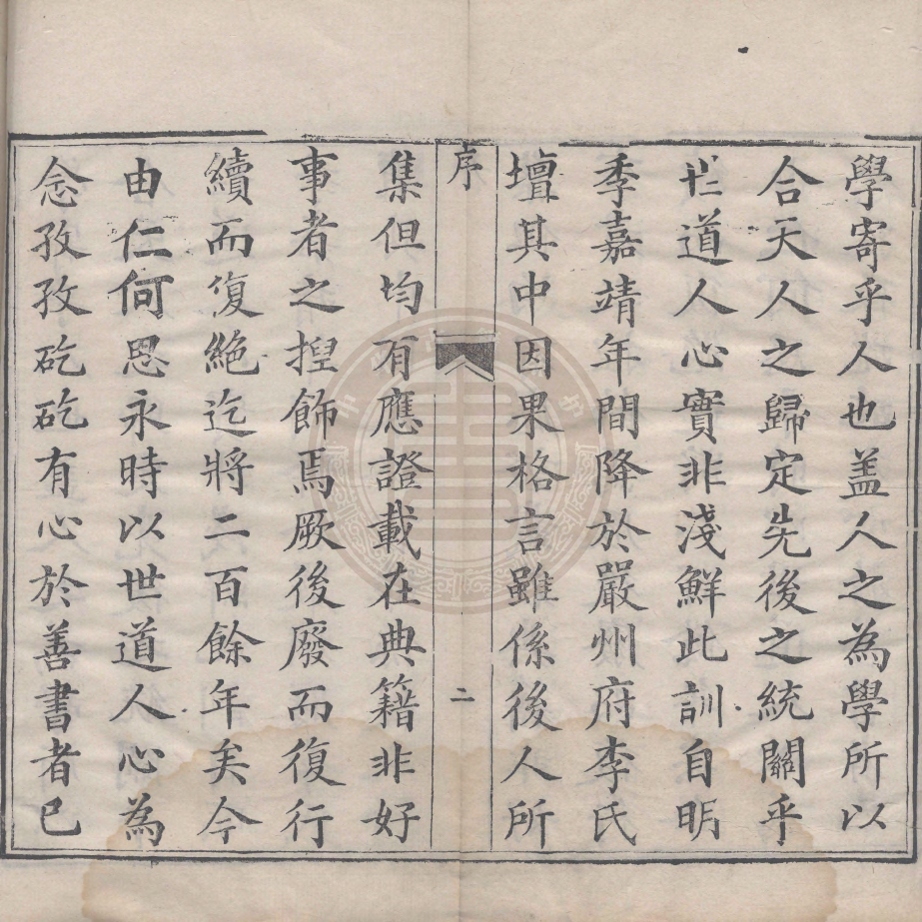 學寄乎人也盖人之為學所以
合天人之歸定先後之統關乎
丗道人心實非淺鮮此訓自明
季嘉靖年間降於嚴州府李氏
壇其中因果格言雖係後人所
序
二
集但均有應證載在典籍非好
事者之揑飾焉厥後廢而復行
續而復絶迄將二百餘年矣今
由仁何恩永時以世道人心為
念孜孜矻矻有心於善書者已